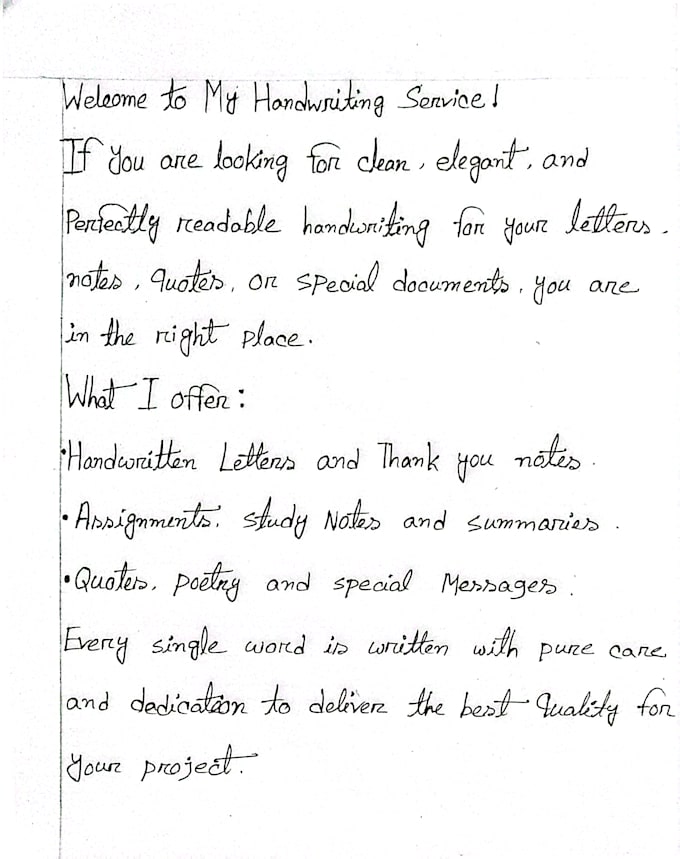 Welcome to My Handwriting Service!
If you are looking for clean, elegant, and
Perfectly readable handwriting for your letters,
notes, Quotes, or special documents, you are
in the right place.
What I offer:
•Handwritten Letters and Thank you notes.
•Assignments, study Notes and summaries.
•Quotes, poetry and special Messages.
Every single word is written with pure care
and dedication to deliver the best Quality for
your project.